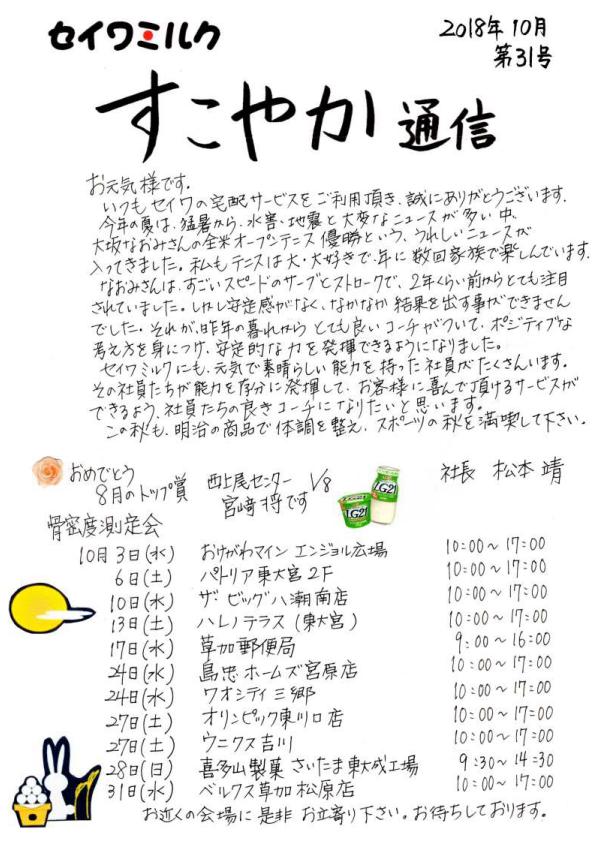 セイワミルク
2018年10月
第31号
すこやか通信
お元気様です。
いつもセイワの宅配サービスをご利用頂き、誠にありがとうございます。
今年の夏は、猛暑から、水害、地震と大変なニュースが多い中、
大坂なおみさんの全米オープンテニス優勝という、うれしいニュースが
入ってきました。私もテニスは大・大好きで、年に数回家族で楽しんでいます。
なおみさんは、すごいスピードのサーブとストロークで、2年くらい前からとても注目
されていました。しかし安定感がなく、なかなか結果を出す事ができません
でした。それが、昨年の暮れからとても良いコーチがついて、ポジティブな
考え方を身につけ、安定的な力を発揮できるようになりました。
セイワミルクにも、元気で素晴らしい能力を持った社員がたくさんいます。
その社員たちが能力を存分に発揮して、お客様に喜んで頂けるサービスが
できるよう、社員たちの良きコーチになりたいと思います。
この秋も、明治の商品で体調を整え、スポーツの秋を満喫して下さい。
社長 松本 靖
おめでとう
8月のトップ賞
西上尾センター 1/8
宮﨑 将です
LG21
LG21
骨密度測定会
10月3日(水) おけがわマイン エンジョル広場 10:00～17:00
6日(土) パトリア東大宮2F 10:00～17:00
10日(水) ザ・ビッグ八潮南店 10:00～17:00
13日(土) ハレノテラス(東大宮) 10:00～17:00
17日(水) 草加郵便局 9:00～16:00
24日(水) 島忠ホームズ宮原店 10:00～17:00
24日(水) ワオシティ三郷 10:00～17:00
27日(土) オリンピック東川口店 10:00～17:00
27日(土) ウニクス吉川 10:00～17:00
28日(日) 喜多山製菓さいたま東大成工場 9:30～14:30
31日(水) ベルクス草加松原店 10:00～17:00
お近くの会場に是非お立寄り下さい。お待ちしております。